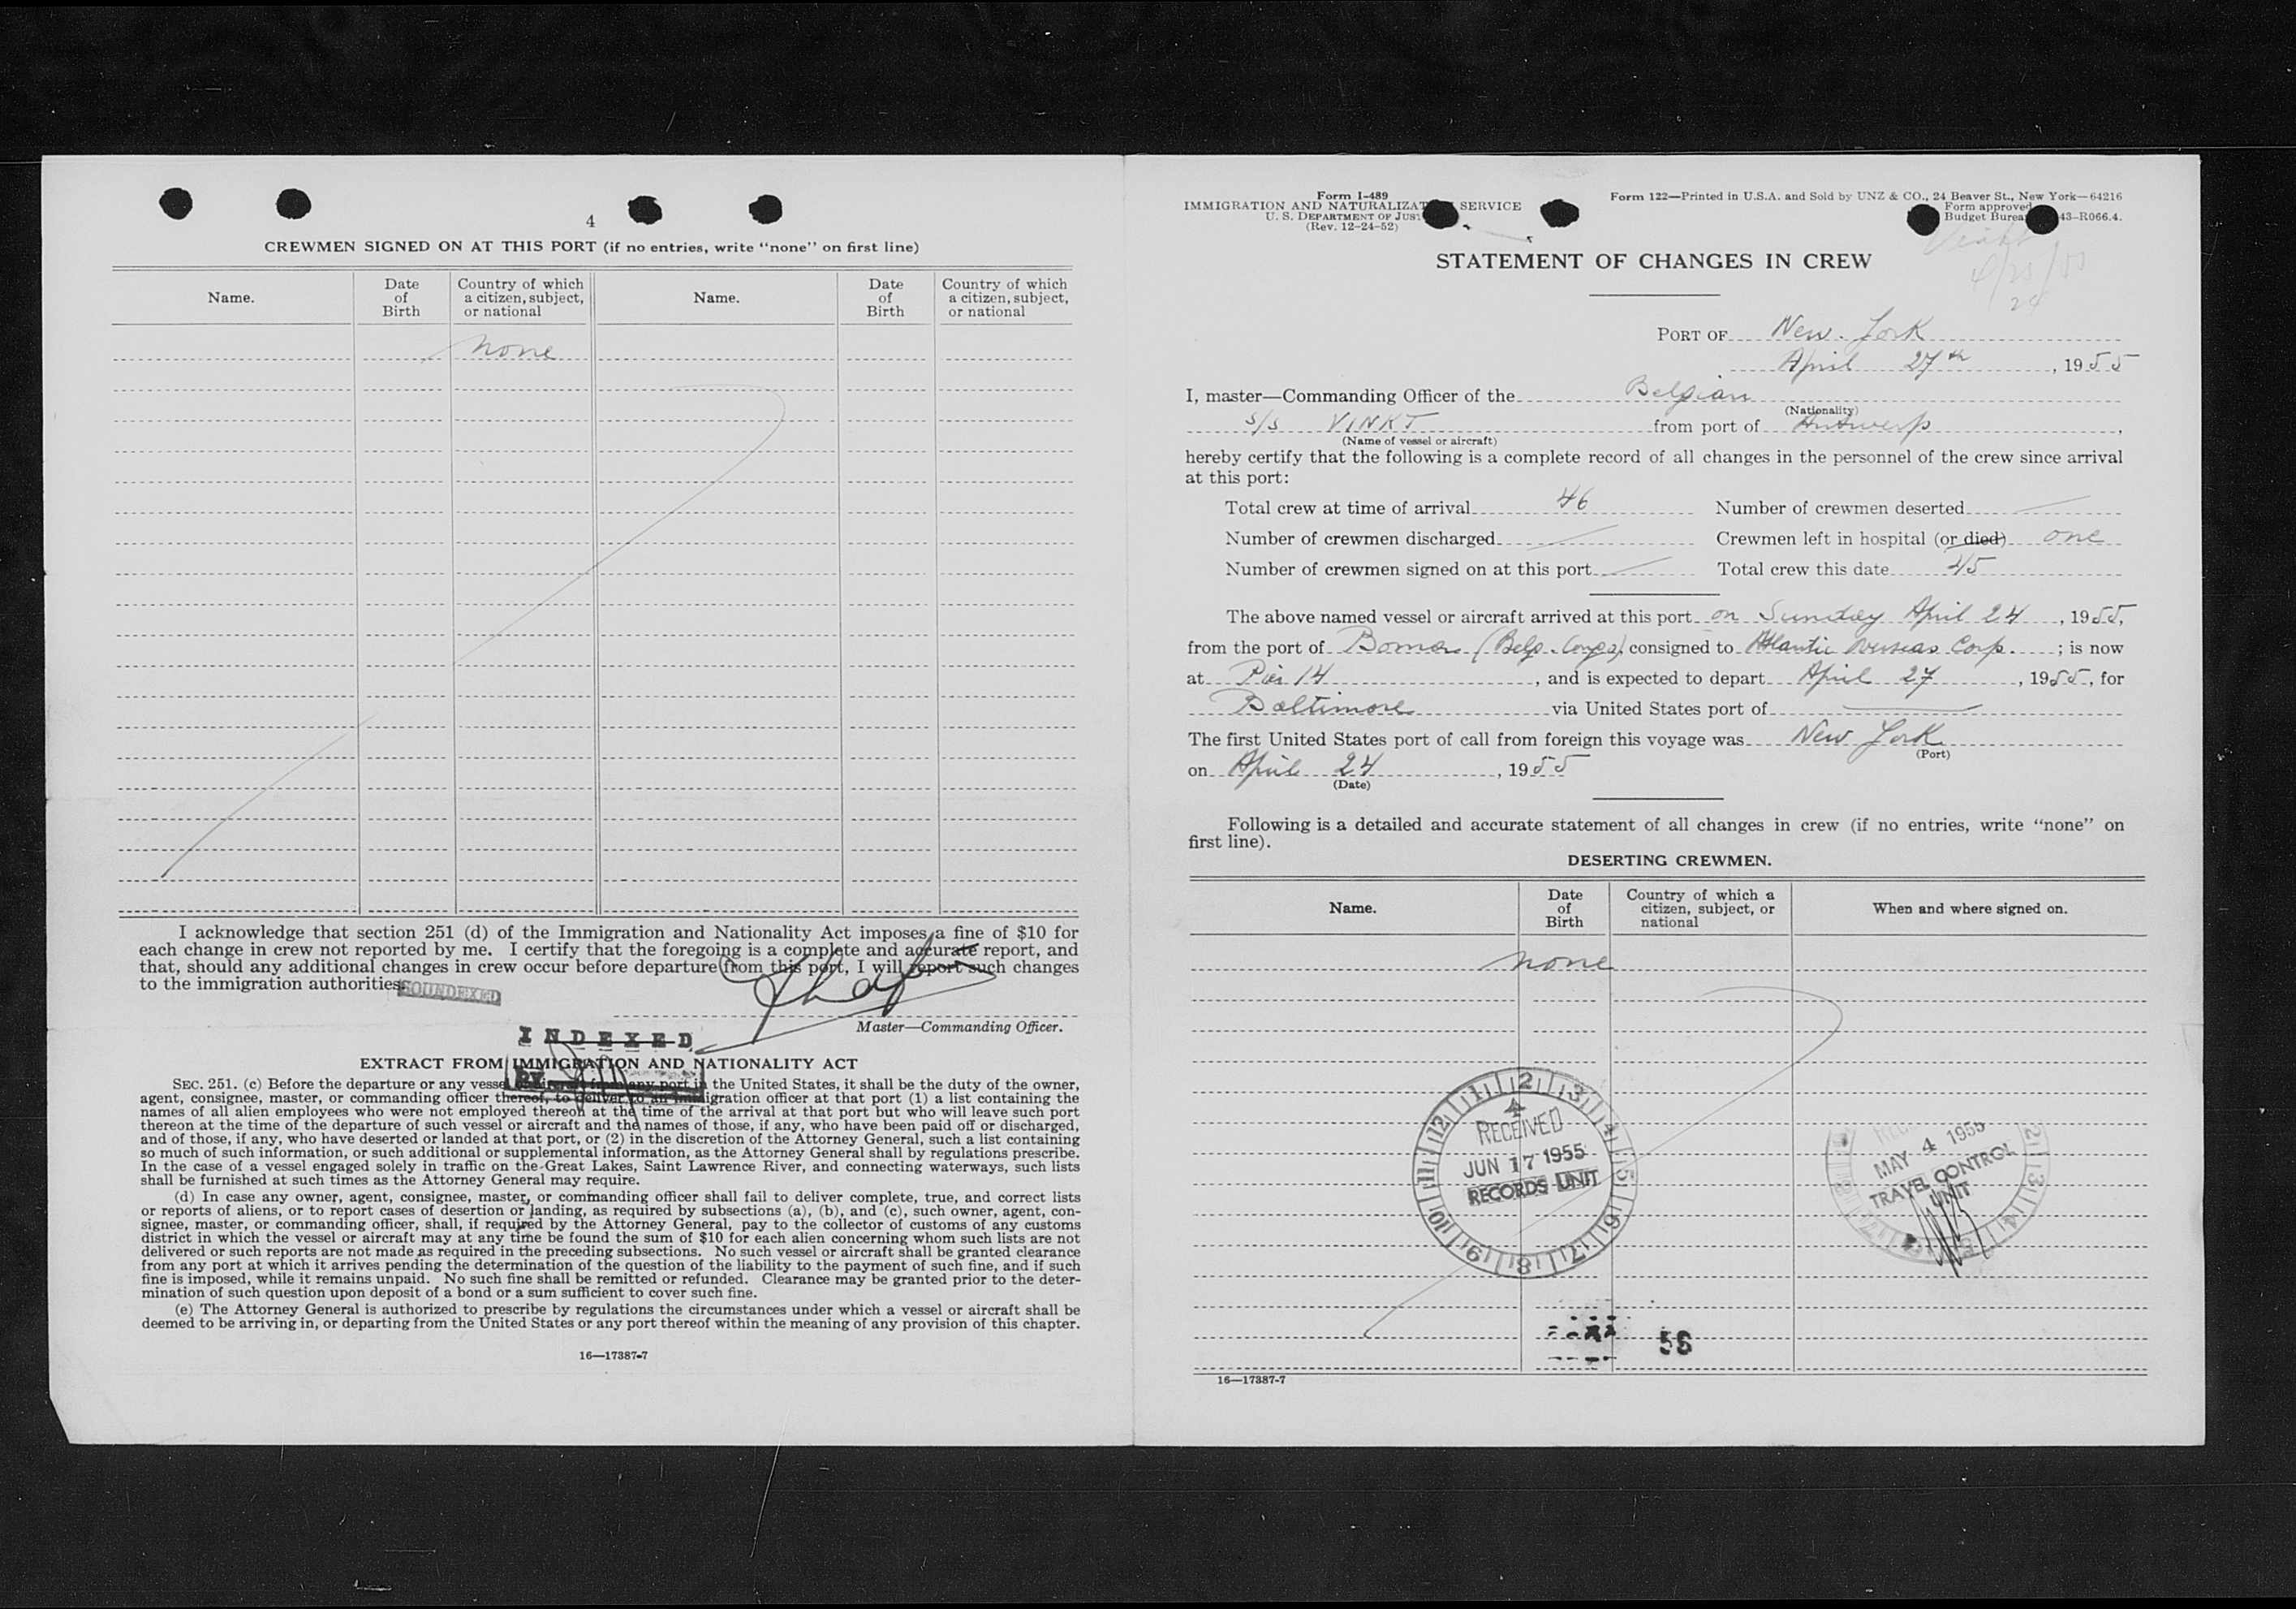 4
CREWMEN SIGNED ON AT THIS PORT (if no entries, write "none" on first line)
Name. Date of Birth Country of which a citizen, subject, or national Name. Date of Birth Country of which a citizen, subject, or national
none
I acknowledge that section 251 (d) of the Immigration and Nationality Act imposes a fine of $10 for
each change in crew not reported by me. I certify that the foregoing is a complete and accurate report, and
that, should any additional changes in crew occur before departure from this port, I will report such changes
to the immigration authorities.
SOUNDEXED
Master—Commanding Officer.
INDEXED
BY
EXTRACT FROM IMMIGRATION AND NATIONALITY ACT
SEC. 251. (c) Before the departure or any vessel or aircraft from any port in the United States, it shall be the duty of the owner,
agent, consignee, master, or commanding officer thereof, to deliver to an immigration officer at that port (1) a list containing the
names of all alien employees who were not employed thereon at the time of the arrival at that port but who will leave such port
thereon at the time of the departure of such vessel or aircraft and the names of those, if any, who have been paid off or discharged,
and of those, if any, who have deserted or landed at that port, or (2) in the discretion of the Attorney General, such a list containing
so much of such information, or such additional or supplemental information, as the Attorney General shall by regulations prescribe.
In the case of a vessel engaged solely in traffic on the Great Lakes, Saint Lawrence River, and connecting waterways, such lists
shall be furnished at such times as the Attorney General may require.
(d) In case any owner, agent, consignee, master, or commanding officer shall fail to deliver complete, true, and correct lists
or reports of aliens, or to report cases of desertion or landing, as required by subsections (a), (b), and (c), such owner, agent, con-
signee, master, or commanding officer, shall, if required by the Attorney General, pay to the collector of customs of any customs
district in which the vessel or aircraft may at any time be found the sum of $10 for each alien concerning whom such lists are not
delivered or such reports are not made as required in the preceding subsections. No such vessel or aircraft shall be granted clearance
from any port at which it arrives pending the determination of the question of the liability to the payment of such fine, and if such
fine is imposed, while it remains unpaid. No such fine shall be remitted or refunded. Clearance may be granted prior to the deter-
mination of such question upon deposit of a bond or a sum sufficient to cover such fine.
(e) The Attorney General is authorized to prescribe by regulations the circumstances under which a vessel or aircraft shall be
deemed to be arriving in, or departing from the United States or any port thereof within the meaning of any provision of this chapter.
16—17387-7
Form I-489
IMMIGRATION AND NATURALIZAT SERVICE
U. S. DEPARTMENT OF JUS
(Rev. 12-24-52)
Form 122—Printed in U.S.A. and Sold by UNZ & CO., 24 Beaver St., New York—64216
Form approved
Budget Burea 43-R066.4.
STATEMENT OF CHANGES IN CREW
PORT OF New York
April 27th, 1955
I, master—Commanding Officer of the Belgian
(Nationality)
s/s VINKT from port of Antwerp,
(Name of vessel or aircraft)
hereby certify that the following is a complete record of all changes in the personnel of the crew since arrival
at this port:
Total crew at time of arrival 46 Number of crewmen deserted —
Number of crewmen discharged — Crewmen left in hospital (or died) one
Number of crewmen signed on at this port — Total crew this date 45
The above named vessel or aircraft arrived at this port on Sunday April 24, 1955,
from the port of Boma (Belg. Congo), consigned to Atlantic Overseas Corp.; is now
at Pier 14, and is expected to depart April 27, 1955, for
Baltimore via United States port of —
The first United States port of call from foreign this voyage was New York
(Port)
on April 24, 1955
(Date)
Following is a detailed and accurate statement of all changes in crew (if no entries, write "none" on
first line).
DESERTING CREWMEN.
Name. Date of Birth Country of which a citizen, subject, or national When and where signed on.
none
RECEIVED
JUN 17 1955
RECORDS UNIT
MAY 4 1955
TRAVEL CONTROL
UNIT
16—17387-7